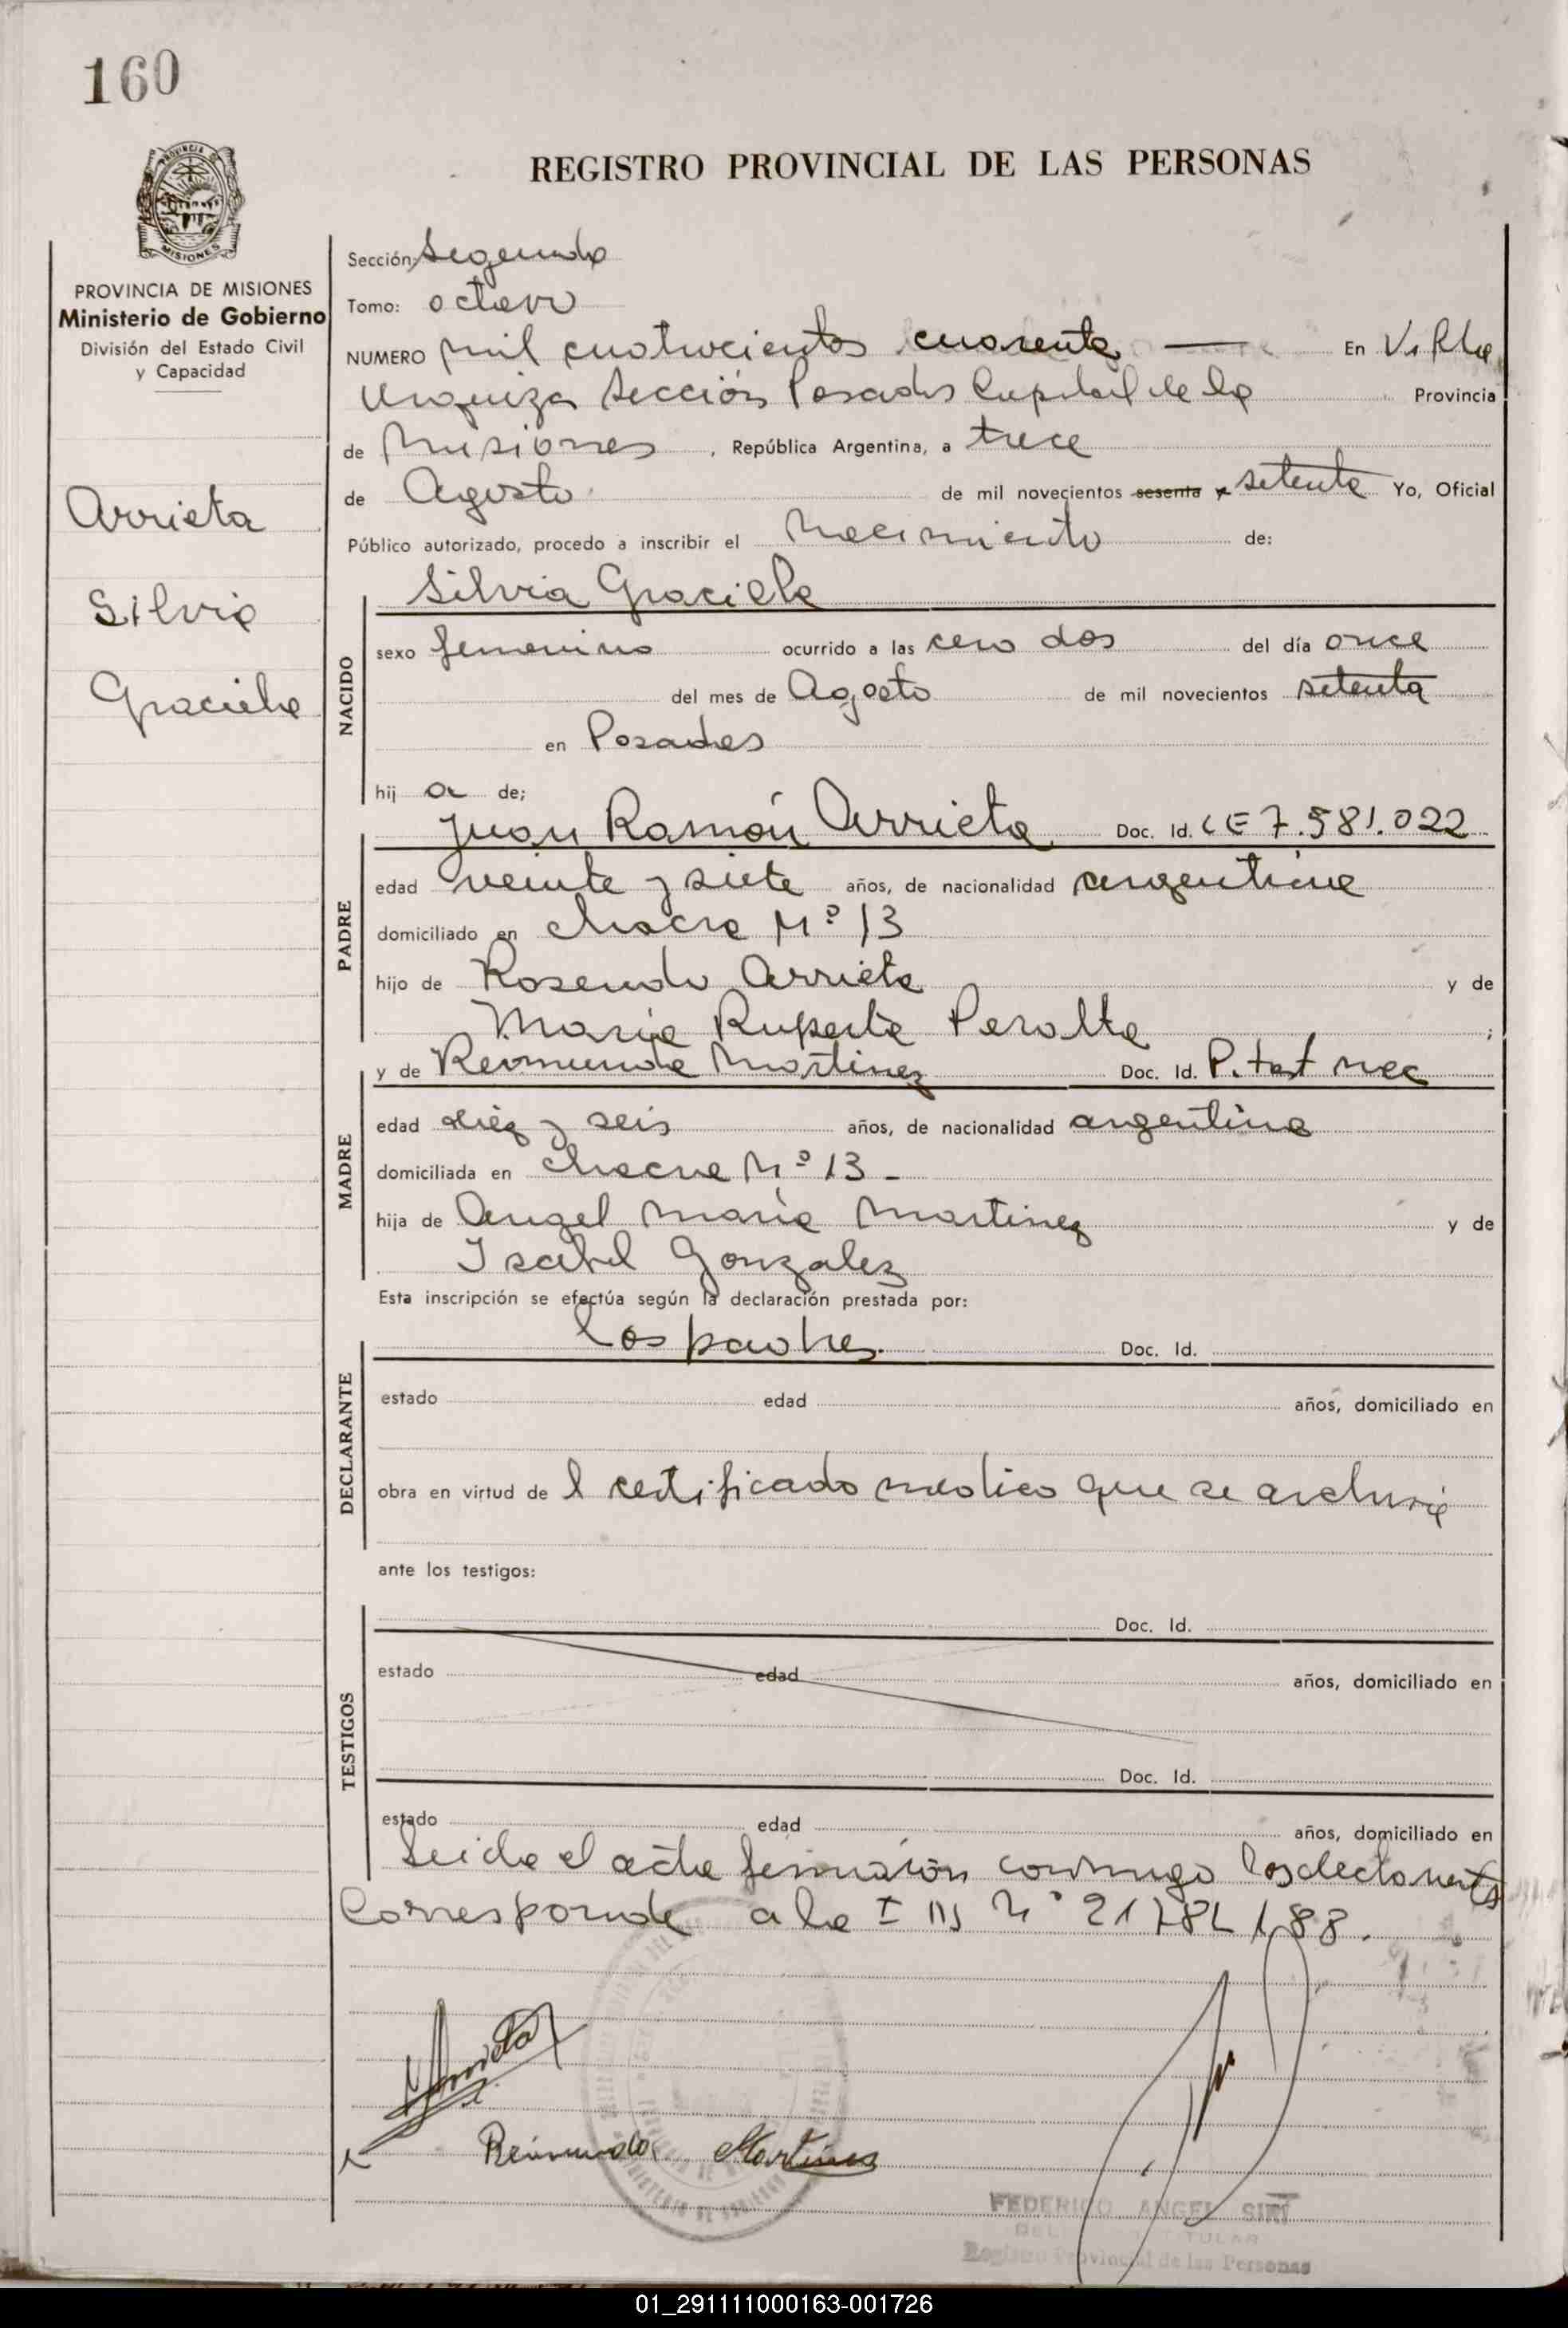 160
REGISTRO PROVINCIAL DE LAS PERSONAS
PROVINCIA DE MISIONES
PROVINCIA DE MISIONES
Ministerio de Gobierno
División del Estado Civil
y Capacidad
Arrieta
Silvia
Graciela
Sección: Segunda
Tomo: octavo
NUMERO mil cuatrocientos cuarenta — En Villa
Urquiza Sección Posadas Capital de la Provincia
de Misiones, República Argentina, a trece
de Agosto de mil novecientos sesenta y setenta Yo, Oficial
Público autorizado, procedo a inscribir el Nacimiento de:
NACIDO
Silvia Graciela
sexo femenino ocurrido a las cero dos del día once
del mes de Agosto de mil novecientos setenta
en Posadas
hij a de;
PADRE
Juan Ramón Arrieta Doc. Id. CE 7.581.022
edad veinte y siete años, de nacionalidad argentina
domiciliado en chacra Nº 13
hijo de Rosendo Arrieta y de
Maria Ruperta Peralta ;
MADRE
y de Reimunda Martinez Doc. Id. P. test nac
edad diez y seis años, de nacionalidad argentina
domiciliada en chacra Nº 13 -
hija de Angel María Martinez y de
Isabel Gonzalez
Esta inscripción se efectúa según la declaración prestada por:
DECLARANTE
los padres. Doc. Id.
estado edad años, domiciliado en
obra en virtud de l certificado medico que se archiva
ante los testigos:
TESTIGOS
Doc. Id.
estado edad años, domiciliado en
Doc. Id.
estado edad años, domiciliado en
Leida el acta firmaron conmigo los declarantes
Corresponde a la Nº
Arrieta
Reimunda Martines
FEDERICO ANGEL SIRI
TITULAR
Registro Provincial de las Personas
01_291111000163-001726